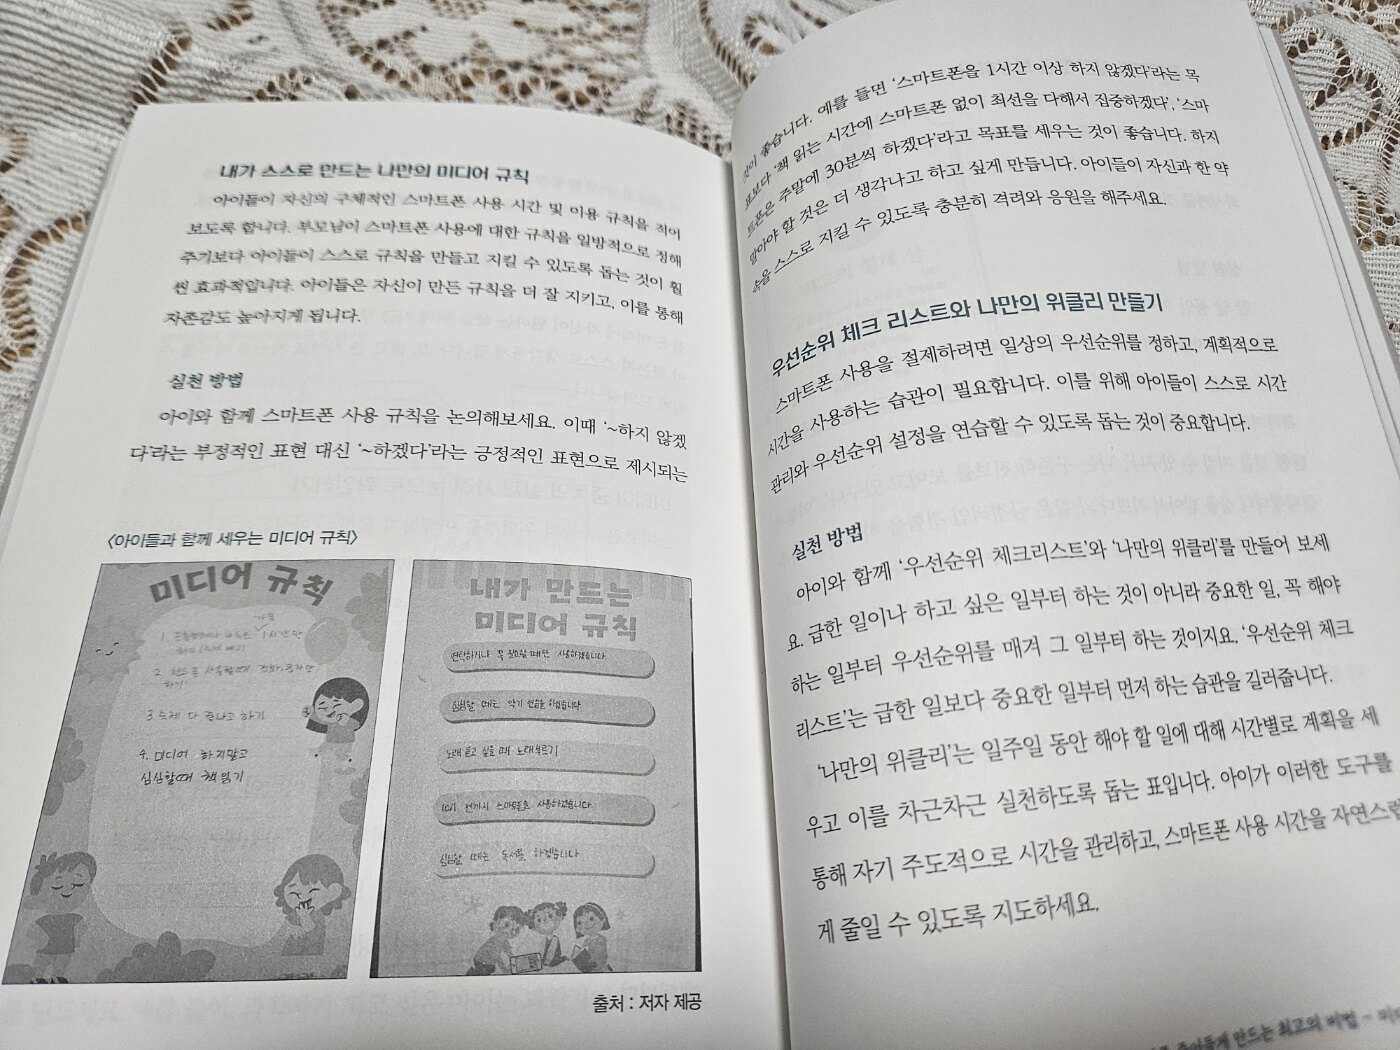 내가 스스로 만드는 나만의 미디어 규칙
아이들이 자신의 구체적인 스마트폰 사용 시간 및 이용 규칙을 적어
보도록 합니다. 부모님이 스마트폰 사용에 대한 규칙을 일방적으로 정해
주기보다 아이들이 스스로 규칙을 만들고 지킬 수 있도록 돕는 것이 훨
씬 효과적입니다. 아이들은 자신이 만든 규칙을 더 잘 지키고, 이를 통해
자존감도 높아지게 됩니다.
실천 방법
아이와 함께 스마트폰 사용 규칙을 논의해보세요. 이때 ‘~하지 않겠
다’라는 부정적인 표현 대신 ‘~하겠다’라는 긍정적인 표현으로 제시되는
〈아이들과 함께 세우는 미디어 규칙〉
미디어 규칙
1. 1시간만
2. 사용할때 전화, 문자만
하기
3. 숙제 다 끝나고 하기
4. 미디어 하지말고
심심할때 책 읽기
내가 만드는
미디어 규칙
연락하거나 꼭 필요할 때만 사용하겠습니다.
심심할 때는 악기 연습을 하겠습니다
노래 듣고 싶을 때 노래 부르기
10시 전까지 스마트폰을 사용하겠습니다.
심심할 때는 독서를 하겠습니다
출처 : 저자 제공
것이 좋습니다. 예를 들면 ‘스마트폰을 1시간 이상 하지 않겠다’라는 목
표보다 ‘책 읽는 시간에 스마트폰 없이 최선을 다해서 집중하겠다’, ‘스마
트폰은 주말에 30분씩 하겠다’라고 목표를 세우는 것이 좋습니다. 하지
말아야 할 것은 더 생각나고 하고 싶게 만듭니다. 아이들이 자신과 한 약
속을 스스로 지킬 수 있도록 충분히 격려와 응원을 해주세요.
우선순위 체크 리스트와 나만의 위클리 만들기
스마트폰 사용을 절제하려면 일상의 우선순위를 정하고, 계획적으로
시간을 사용하는 습관이 필요합니다. 이를 위해 아이들이 스스로 시간
관리와 우선순위 설정을 연습할 수 있도록 돕는 것이 중요합니다.
실천 방법
아이와 함께 ‘우선순위 체크리스트’와 ‘나만의 위클리’를 만들어 보세
요. 급한 일이나 하고 싶은 일부터 하는 것이 아니라 중요한 일, 꼭 해야
하는 일부터 우선순위를 매겨 그 일부터 하는 것이지요. ‘우선순위 체크
리스트’는 급한 일보다 중요한 일부터 먼저 하는 습관을 길러줍니다.
‘나만의 위클리’는 일주일 동안 해야 할 일에 대해 시간별로 계획을 세
우고 이를 차근차근 실천하도록 돕는 표입니다. 아이가 이러한 도구를
통해 자기 주도적으로 시간을 관리하고, 스마트폰 사용 시간을 자연스럽
게 줄일 수 있도록 지도하세요.
만드는 최고의 비법 -